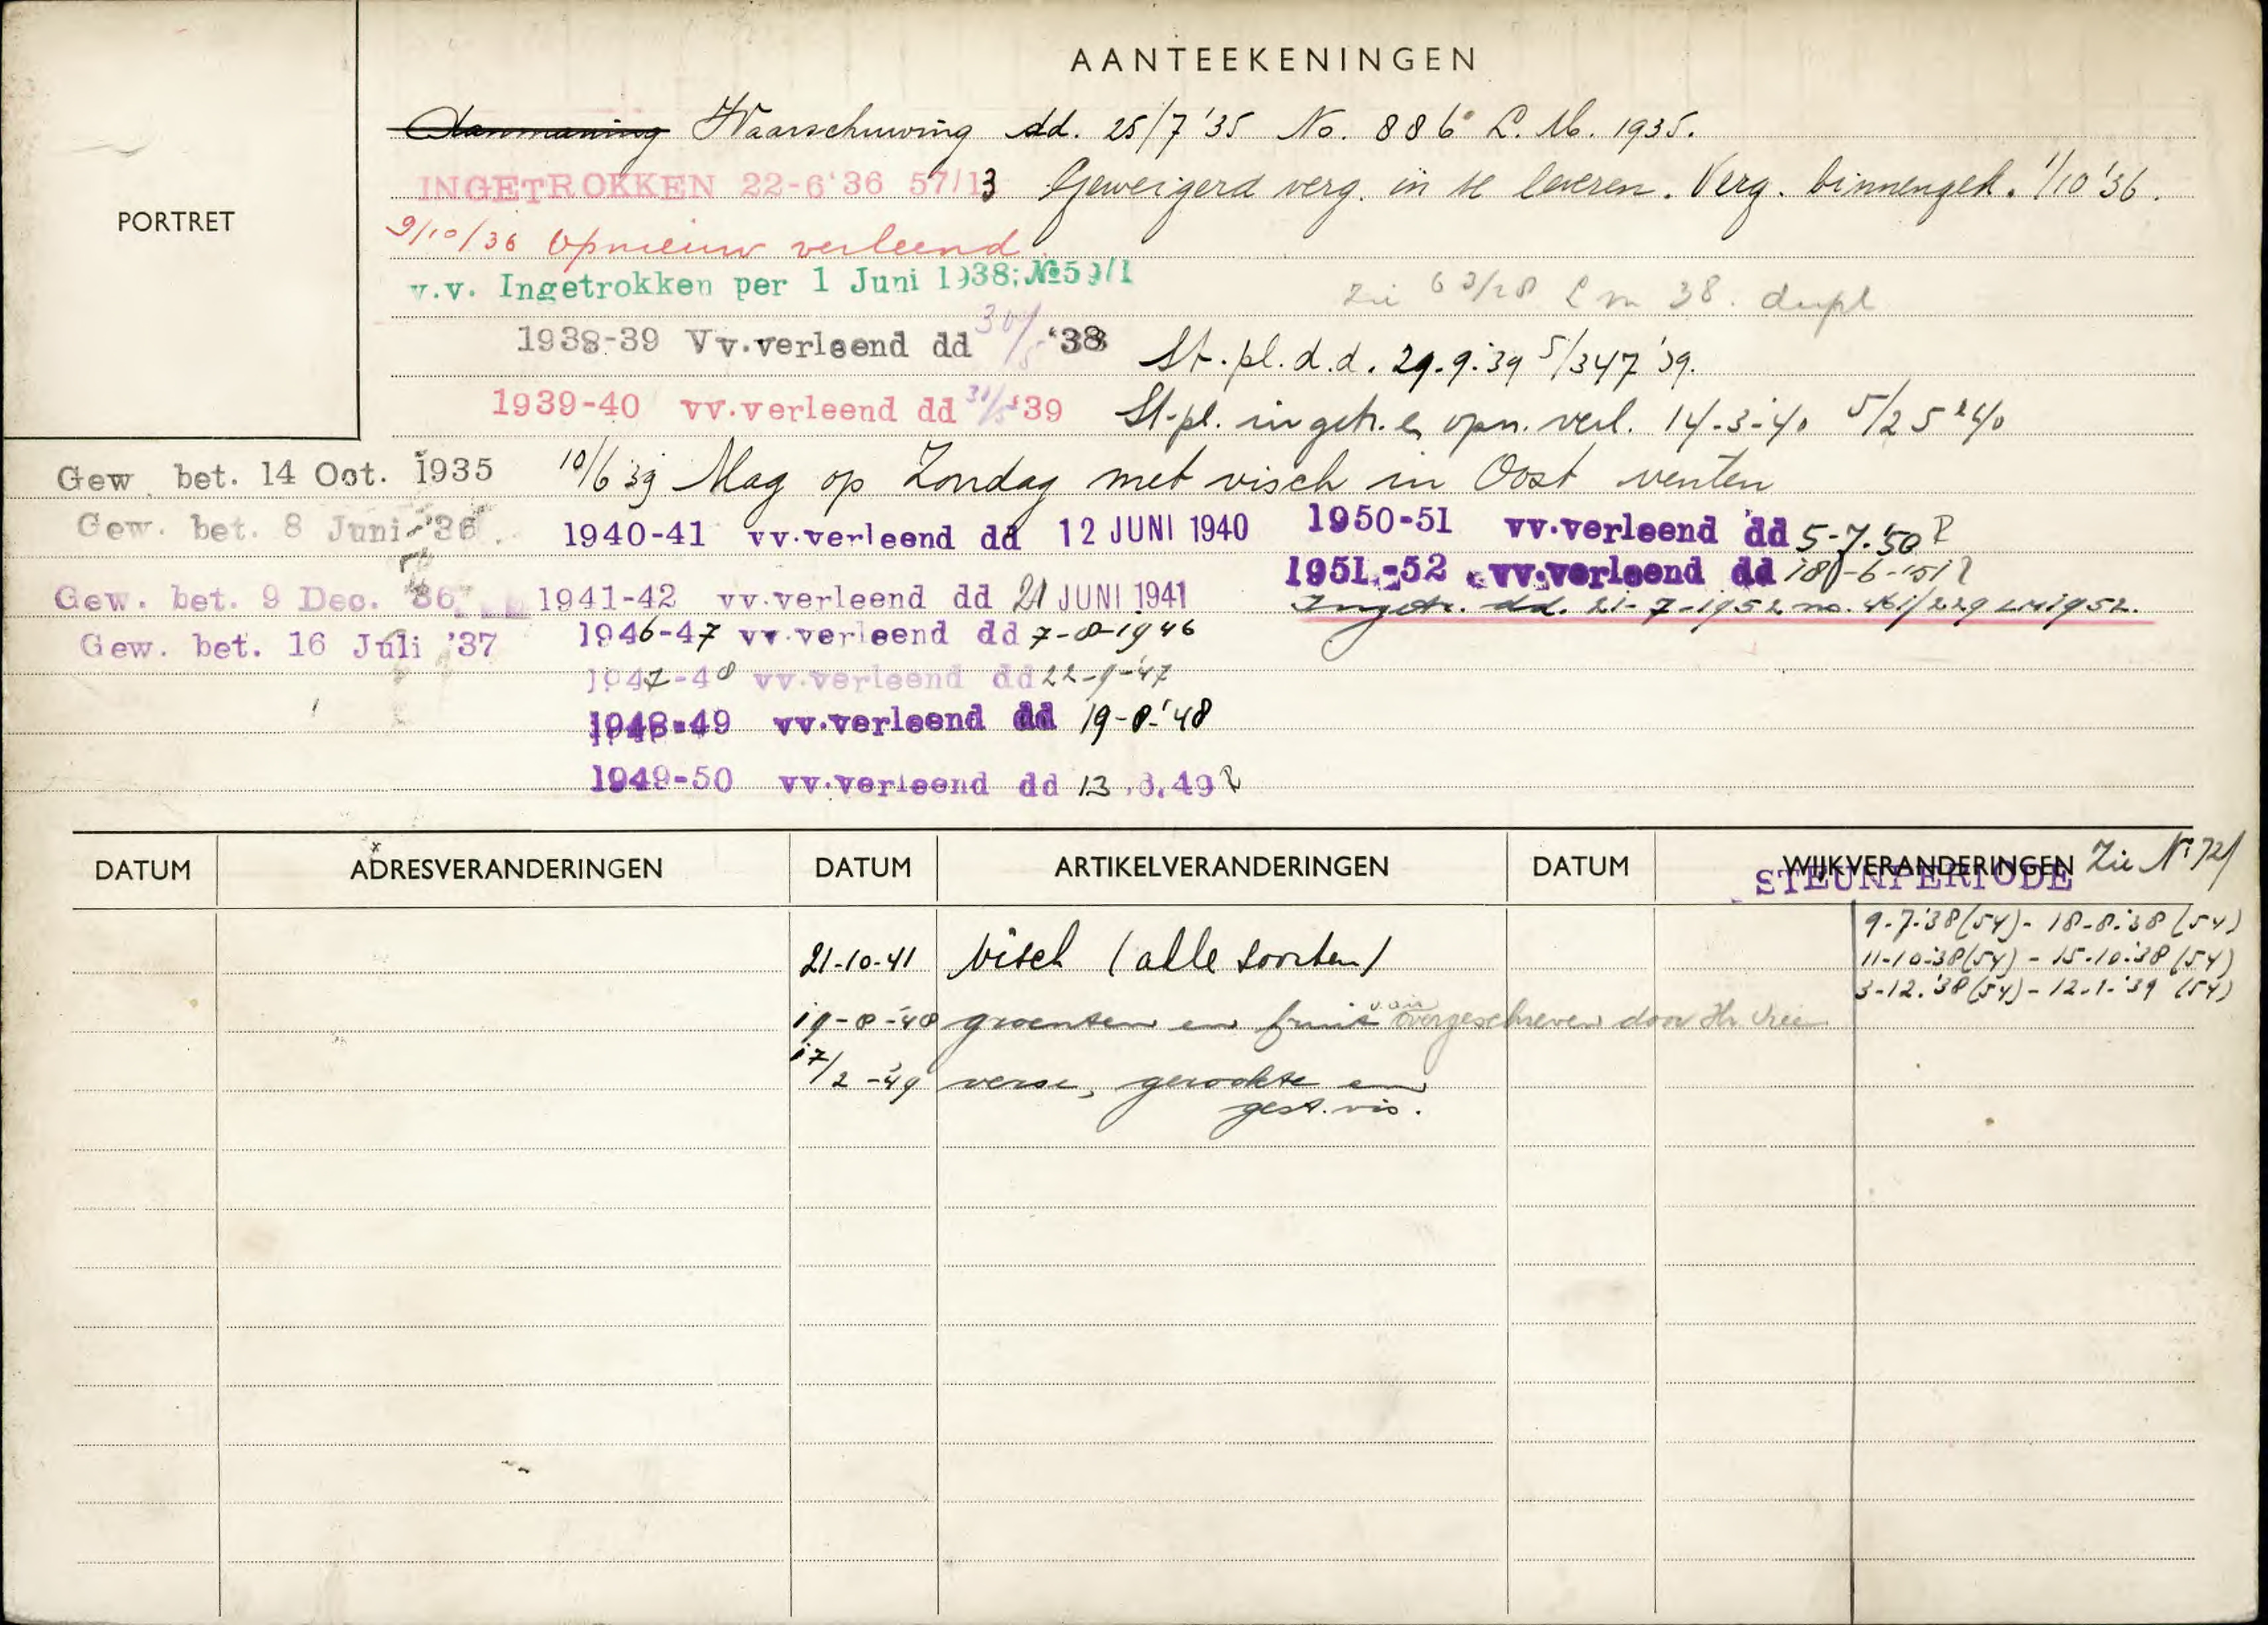 AANTEEKENINGEN
PORTRET
Aanmaning Waarschuwing dd. 25/7 '35 No. 886 L.M. 1935.
INGETROKKEN 22-6'36 57/13 Geweigerd verg. in te leveren. Verg. binnengek. 1/10 '36.
9/10/36 Opnieuw verleend
v.v. Ingetrokken per 1 Juni 1938; No59/1
Zie 63/28 L m 38. dupl
1938-39 Vv.verleend dd 30/5 '38 St.pl.d.d. 29.9.'39 5/347 '39.
1939-40 vv.verleend dd 31/5 '39 St-pl. ingetr. en opn. verl. 14-3-40
Gew. bet. 14 Oct. 1935
10/6 39 Mag op Zondag met visch in Oost venten
Gew. bet. 8 Juni '36.
1940-41 vv.verleend dd 12 JUNI 1940
1950-51 vv.verleend dd 5-7.'50
1951-52 vv.verleend dd 18-6-'51
Gew. bet. 9 Dec. '36
1941-42 vv.verleend dd 21 JUNI 1941
Ingetr. dd. 21-7-1952 no. 461/229 LM 1952.
Gew. bet. 16 Juli '37
1946-47 vv.verleend dd 7-8-1946
1947-48 vv.verleend dd 22-9-'47
1948-49 vv.verleend dd 19-8-'48
1949-50 vv.verleend dd 13.6.49
DATUM ADRESVERANDERINGEN DATUM ARTIKELVERANDERINGEN DATUM WIJKVERANDERINGEN Zie No 721
STEUNPERIODE
9-7-'38(54) - 18-8-'38(54)
21-10-41 Visch (alle soorten)
11-10-'38(54) - 15-10-'38(54)
3-12-'38(54) - 12-1-'39 (54)
19-8-'48 groenten en fruit van overgeschreven door Hr
17/2-'49 verse, gerookte en
gest. vis.